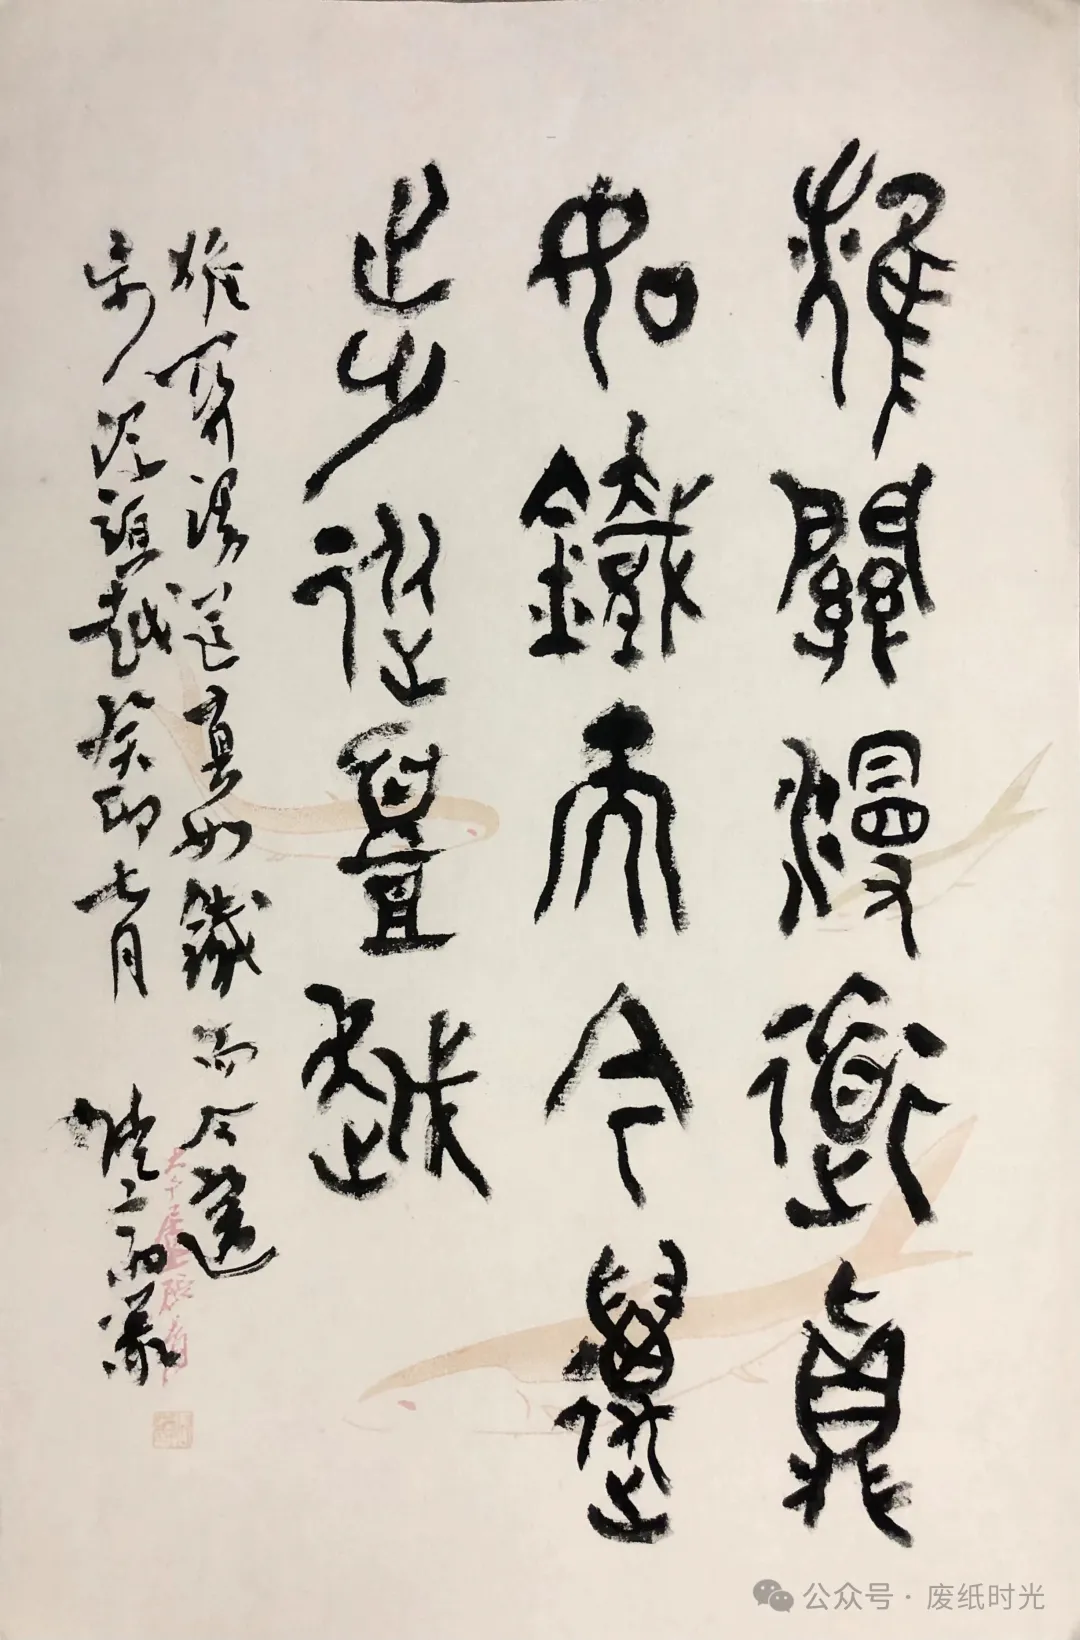 雄關漫道真
如鐵而今邁
步從頭越
雄關漫道真如鐵而今邁
步從頭越癸卯七月
公众号 · 废纸时光